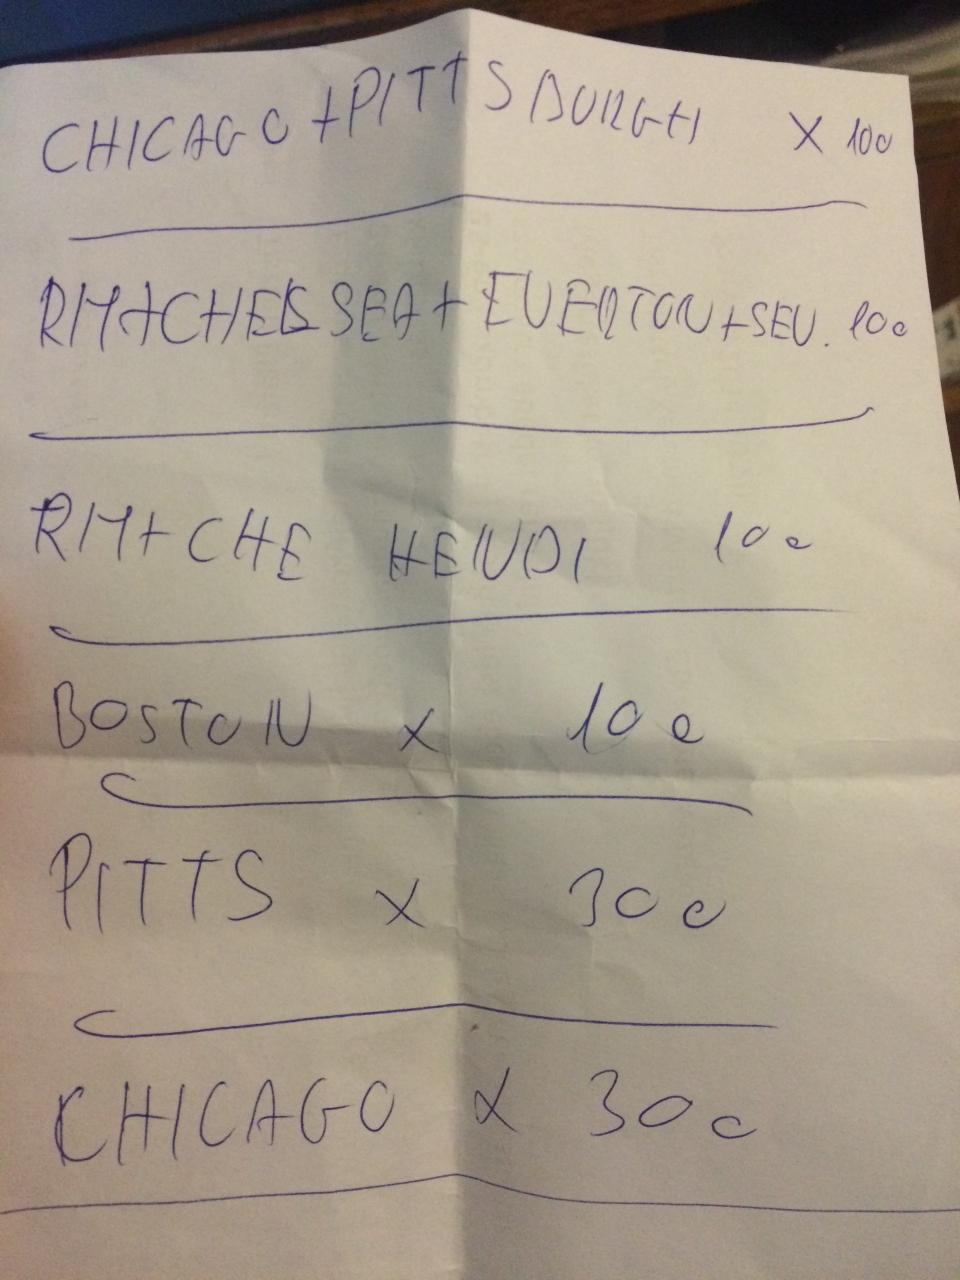 CHICAGO + PITTSBURGH X 10e
RM + CHELSEA + EVERTON + SEV. 10e
RM + CHE HENDI 10e
BOSTON X 10e
PITTS X 30e
CHICAGO X 30e